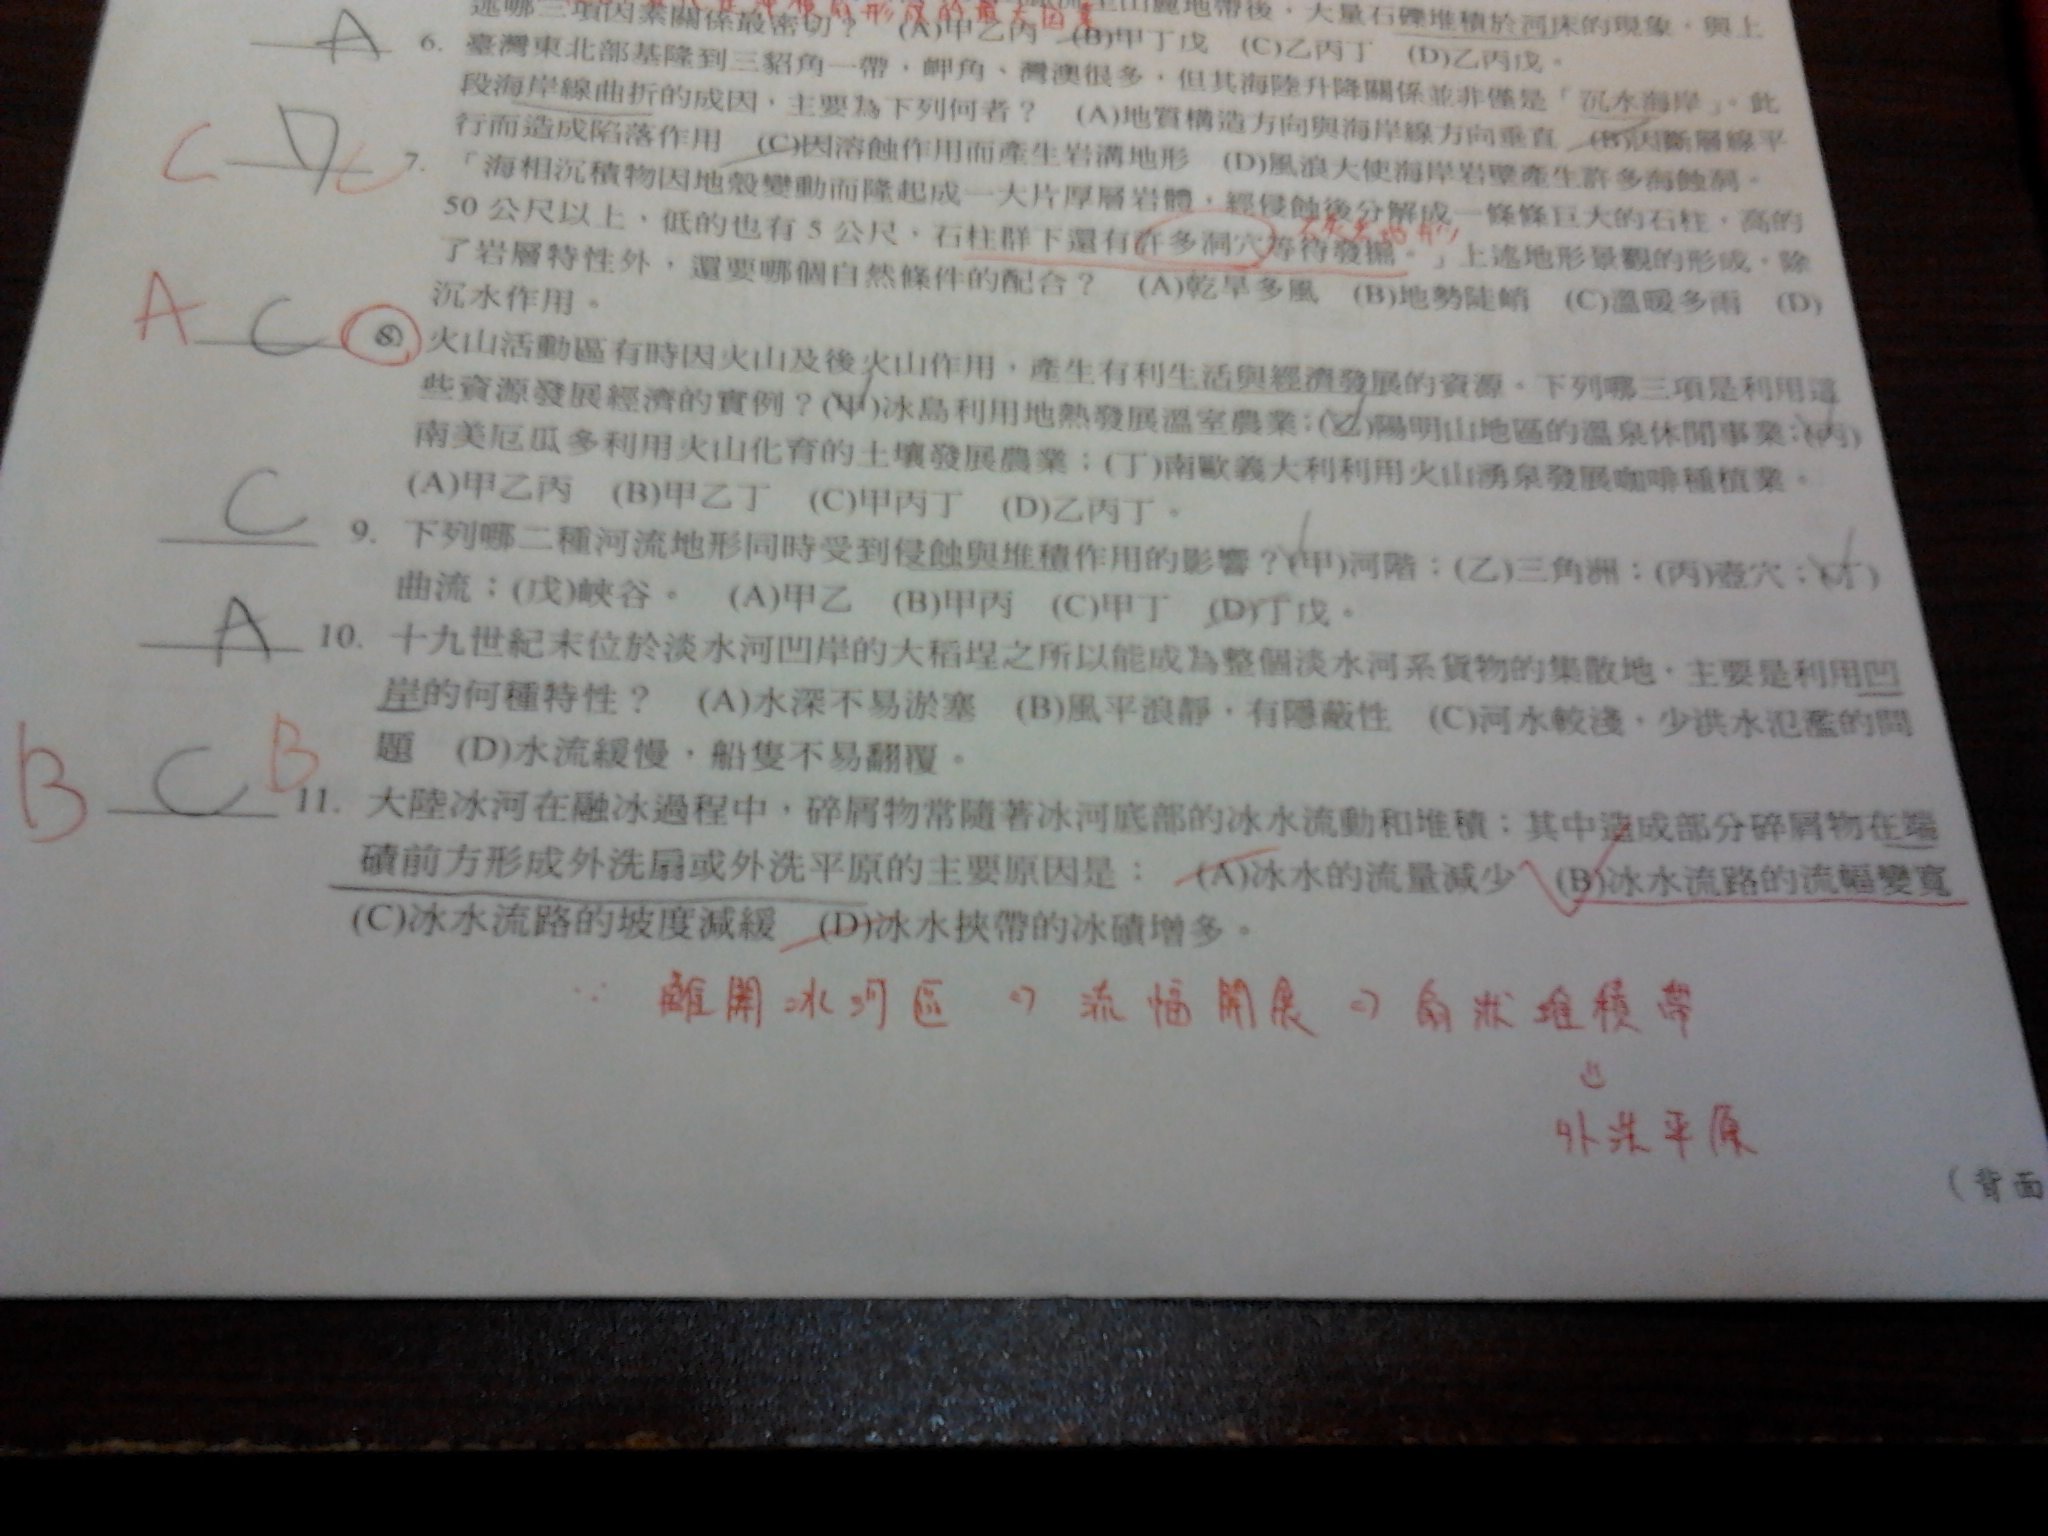 述哪三項因素關係最密切？ (A)甲乙丙 (B)甲丁戊 (C)乙丙丁 (D)乙丙戊。
山麓地帶後，大量石礫堆積於河床的現象，與上
A 6. 臺灣東北部基隆到三貂角一帶，岬角、灣澳很多，但其海陸升降關係並非僅是「沉水海岸」。此
段海岸線曲折的成因，主要為下列何者？ (A)地質構造方向與海岸線方向垂直 (B)因斷層線平
行而造成陷落作用 (C)因溶蝕作用而產生岩溝地形 (D)風浪大使海岸岩壁產生許多海蝕洞。
C D C 7. 「海相沉積物因地殼變動而隆起成一大片厚層岩體，經侵蝕後分解成一條條巨大的石柱，高的
50 公尺以上，低的也有 5 公尺，石柱群下還有許多洞穴等待發掘。」上述地形景觀的形成，除
了岩層特性外，還要哪個自然條件的配合？ (A)乾旱多風 (B)地勢陡峭 (C)溫暖多雨 (D)
沉水作用。
A C 8. 火山活動區有時因火山及後火山作用，產生有利生活與經濟發展的資源。下列哪三項是利用這
些資源發展經濟的實例？(甲)冰島利用地熱發展溫室農業；(乙)陽明山地區的溫泉休閒事業；(丙)
南美厄瓜多利用火山化育的土壤發展農業；(丁)南歐義大利利用火山湧泉發展咖啡種植業。
(A)甲乙丙 (B)甲乙丁 (C)甲丙丁 (D)乙丙丁。
C 9. 下列哪二種河流地形同時受到侵蝕與堆積作用的影響？(甲)河階；(乙)三角洲；(丙)壺穴；(丁)
曲流；(戊)峽谷。 (A)甲乙 (B)甲丙 (C)甲丁 (D)丁戊。
A 10. 十九世紀末位於淡水河凹岸的大稻埕之所以能成為整個淡水河系貨物的集散地，主要是利用凹
岸的何種特性？ (A)水深不易淤塞 (B)風平浪靜，有隱蔽性 (C)河水較淺，少洪水氾濫的問
題 (D)水流緩慢，船隻不易翻覆。
B C B 11. 大陸冰河在融冰過程中，碎屑物常隨著冰河底部的冰水流動和堆積；其中造成部分碎屑物在端
磧前方形成外洗扇或外洗平原的主要原因是： (A)冰水的流量減少 (B)冰水流路的流幅變寬
(C)冰水流路的坡度減緩 (D)冰水挾帶的冰磧增多。
∵ 離開冰河區 ⇒ 流幅開展 ⇒ 扇狀堆積帶
⇓
外洗平原
(背面